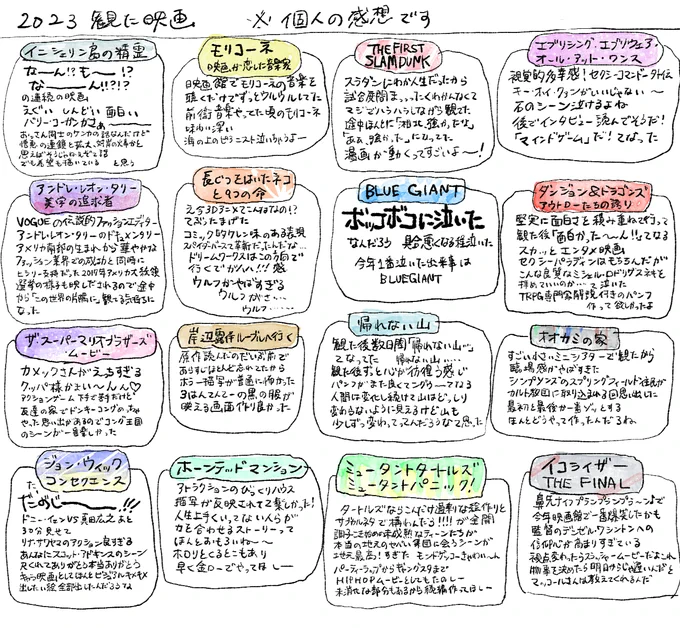 2023 観た映画　※個人の感想です
イニシェリン島の精霊
なーん!?もー!?
なーーん!!?!?
の連続の映画
えぐい しんどい 面白い
バリー・コーガンがさぁ
おってん同士のケンカの話なんだけど
でも希望も描いている と思う
モリコーネ
映画が恋した音楽家
映画館でモリコーネの音楽を
聴くだけでずっとウルウルしてた
前衛音楽やってた頃のモリコーネ
味わい深い
海の上のピアニスト泣いちゃうよー
THE FIRST
SLAM DUNK
スラダンにわか人生だったから
試合展開まっったくわかんなくて
マジでハラハラしながら観てた
途中ほんとに「湘北、強かったな」
「あぁ、強かった」になってた
漫画が動くってすごいよー!
エブリシング・エブリウェア・
オール・アット・ワンス
視覚的多幸感!セクシーコマンドー外伝
キー・ホイ・クァンがいいじゃない〜
石のシーン泣けるよね
後でインタビュー読んでそうだ!
「マインドゲーム」だ!てなった
アンドレ・レオン・タリー
美学の追求者
VOGUEの伝説的ファッションエディター
アンドレ・レオン・タリーのドキュメンタリー
アメリカ南部の生まれから華やかな
ファッション業界での成功と同時に
から「この世の片隅に」観てる気持ちに
なった
長ぐつをはいたネコ
と9つの命
えっ3Dアニメでこんな事なの!?
てぶったまげた
コミックロウクレン味のある表現
ドリームワークスはこの方向で
行くでガハハ!!!感
ウルフがやばすぎる
ウルフがさ…
ウルフ……
BLUE GIANT
ボッコボコに泣いた
なんだろう 具合悪くなる程泣いた
今年1番泣いた出来事は
BLUE GIANT
ダンジョン&ドラゴンズ
アウトローたちの誇り
堅実に面白さを積み重ねて行って
観た後「面白かった〜ん!!」てなる
スカッと エンタメ映画
セクシーパラディンはもちろんだが
こんな良質なミシェル・ロドリゲスネキを
拝めていいのか…て泣いた
TRPG専門家解説付きのパンフ
作って欲しかったよ
ザ・スーパーマリオブラザーズ・
ムービー
カメックさんがえろすぎる
クッパ様かぁいーんん♡
アクションゲーム下手で苦手だけど
友達の家でドンキーコングめっちゃ
やった思い出があるのでコング王国
のシーンが一番楽しかった
岸辺露伴ルーブルへ行く
原作読んだのだいぶ前で
あらすじほとんど忘れてたから
ホラー描写が普通に怖かった
ヨハンスんとーの黒の服が
映える画面作り良かった
帰れない山
観た後数日間「帰れない山…」
てなってた 帰れない山……
観た後ずっと心が彷徨う感じ
パンフがまた良くてングゥーーてなる
人間は変化し続けて山はどっしり
変わらないように見えるけど山も
少しずつ変わってってんだろうなて思った
オオカミの家
すごい小さいミニシアターで観たから
臨場感がやばすぎた
シンプソンズのスプリングフィールド住民が
カルト教団に取り込まれる回思い出した
最初と最後が一番ゾッとする
ほんとどうやって作ったんだろね
ジョン・ウィック
コンセクエンス
た、
だのじーーー!!!
ドニー・イェンVS真田広之 あと
300分見せて
リナ・サワヤマのアクション良すぎる
あんなにスコット・アドキンスのシーン
尺くれてありがとう本当ありがとう
キャラ映画としてほんとビジュアルキメキメ
出したい絵全部出したんだろうな
ホーンテッドマンション
アトラクションのびっくりハウス
描写が反映されてて楽しかった!
人生上手くいってない人らが
力を合わせるストーリーって
ほんとおもろいねー
ホロりとくるとこもあり
早く金ローでやってほしー
ミュータントタートルズ
ミュータントパニック!
タートルズならこんだけ過剰な絵作りと
サブカルネタで構わんだろ!!!!が全開
調子こき始めの未成熟なティーンたちが
本当の地元のやべぇ軍団に会うシーンが
ユセス最高!すぎた モンドゲッコーきゃわいぃん
パーティーラップからギャングスタまで
HIPHOPムービーとしてもたのしー
未消化な部分もあるから続編作ってほしー
イコライザー
THE FINAL
鼻先ナイフプランプランプラ〜ン♪で
今年映画館で一番爆笑したかも
監督のデンゼル・ワシントンへの
信仰心が高まりすぎている
視点変わったらスラッシャームービーだよこれ
物事を決めたら明日からじゃ遅いんだと
マッコールさんは教えてくれるんだ